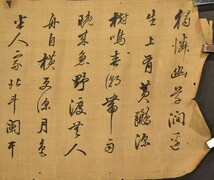 獨憐幽草澗邊
生上有黄鸝深
樹鳴春潮帶雨
晚來急野渡無人
舟自横更深月色
半人家北斗闌干